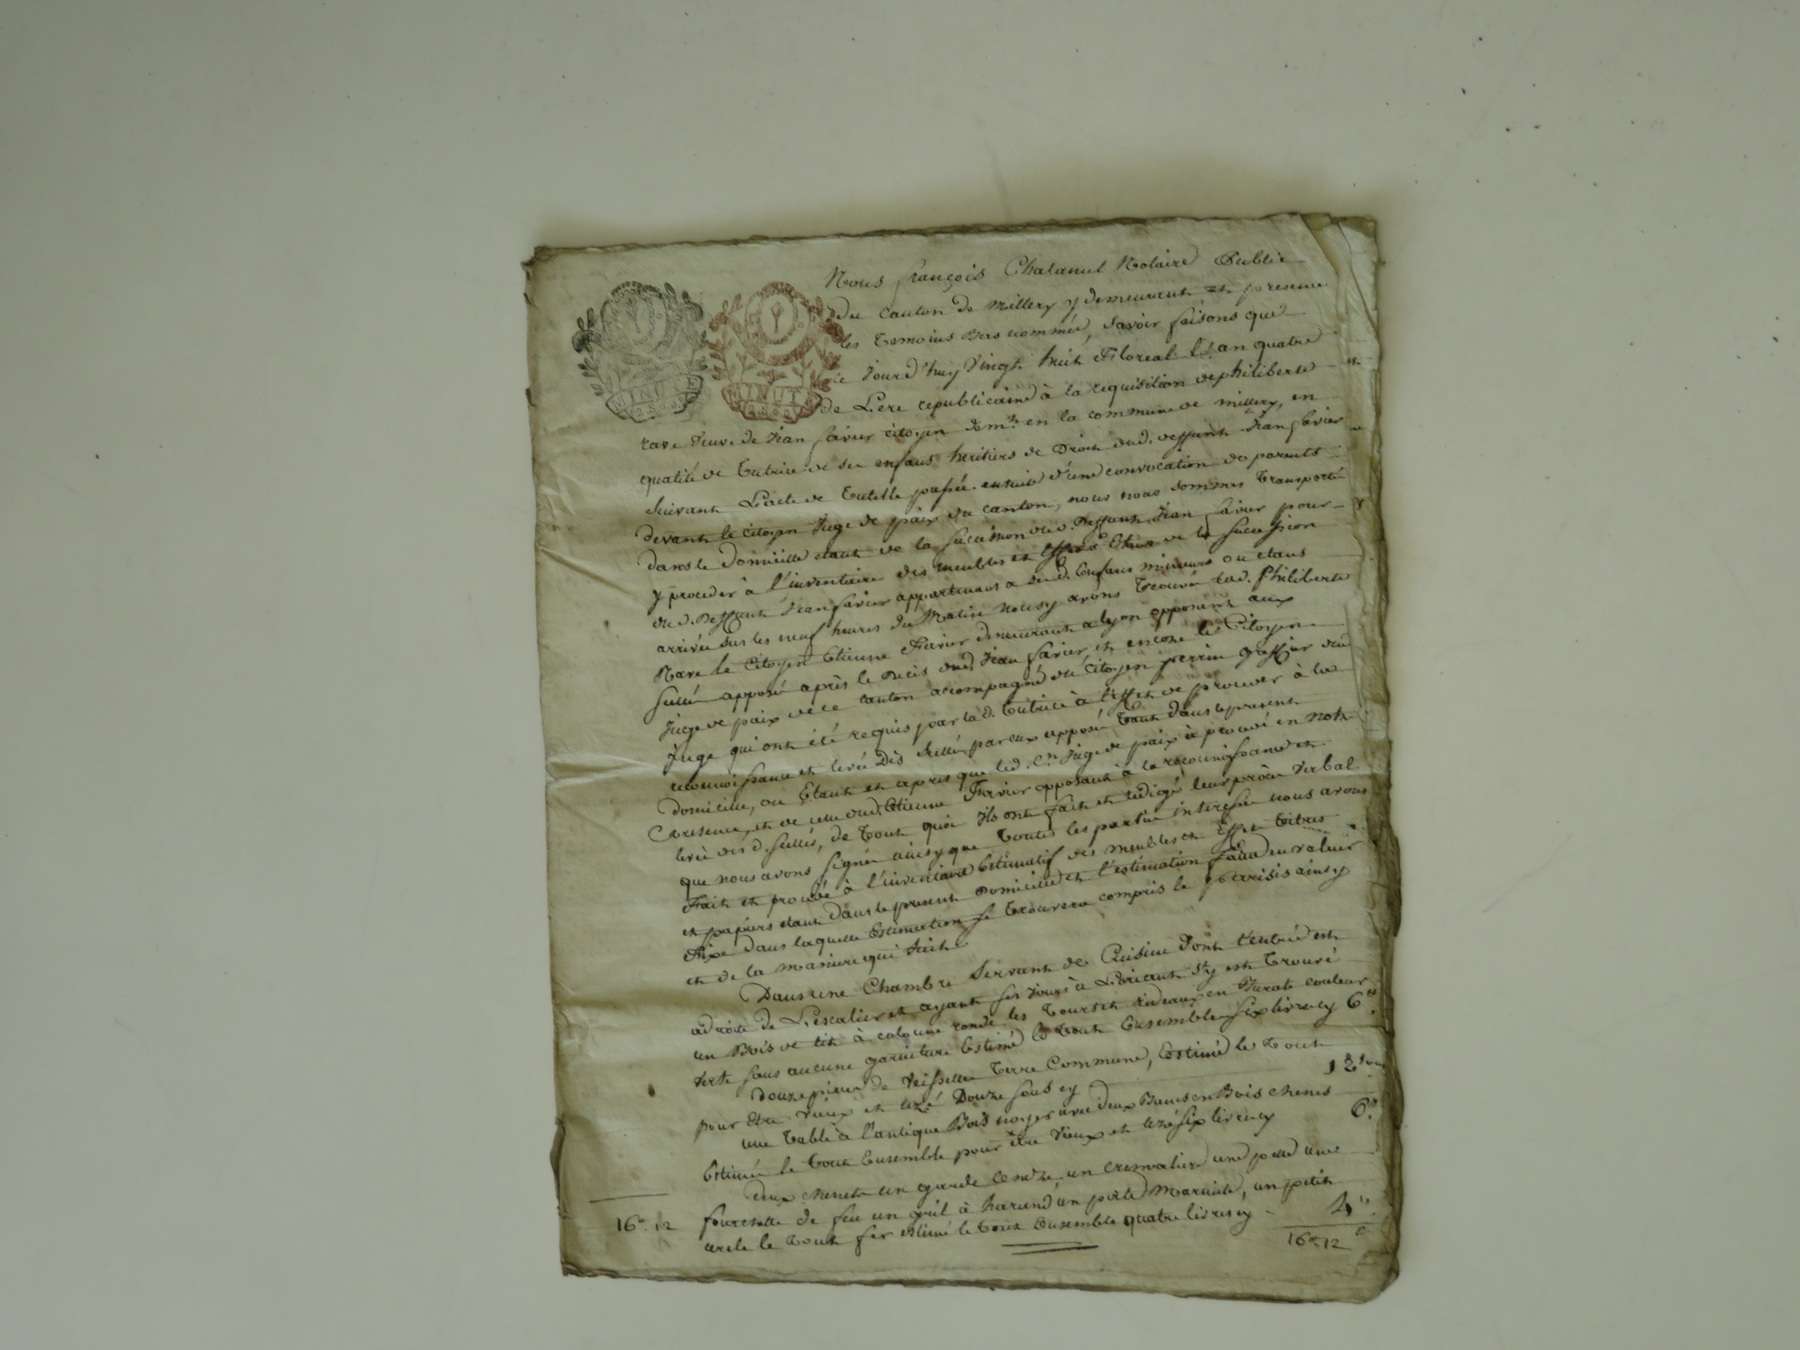 Nous françois Chalamel Notaire Public
du canton de Millery y demeurant et en presence
des temoins Bas nommés, savoir faisons que
ce jourd'huy vingt huit Floreal l'an quatre
de L'ere republicaine à la requisition de philiberte
rave veuve de Jean favier citoyen demt en la commune de millery, en
qualité de tutrice de ses enfans heritiers de Droit dud. deffunt Jean favier
suivant L'acte de tutelle passée ensuite d'une convocation de parents
devant le Citoyen Juge de paix du canton, nous nous sommes transporté
dans le domicille etant de la succession dud. Deffunt Jean favier pour
y proceder à l'inventaire des meubles et effets Etant de la succession
du d. Deffunt Jean favier appartenant a sesd. Enfans mineurs ou etans
arrivés sur les neuf heures du Matin nous y avons trouvé lad. Philiberte
Rave le Citoyen Etienne Favier demeurant a lyon opposant aux
scellé apposé après le décis dud. Jean favier, et encore le Citoyen
Juge de paix de ce canton accompagné du Citoyen perrin greffier dud
Juge qui ont été requis par lad. tutrice à l'effet de proceder à la
reconnoissance et levée des scellés par eux apposé tant dans le present
domicille, ou Etant et après que led. Cn Juge de paix à procedé en notre
presence, et de celle dud. Etienne Favier opposant à la reconnoissance et
levée des d. scellés, de tout quoi ils ont fait et redigé leur procès verbal
que nous avons signé ainsy que toutes les parties interessée nous avons
Fait et procedé à l'inventaire Estimatif des meubles et Effets titres
et papiers etant dans le present Domicille et l'estimation faitte en valeur
Fixe dans laquelle Estimation se trouvera compris le parisis ainsy
et de la maniere qui suit
Dans une Chambre servant de Cuisine dont l'entrée est
adroite de L'escalier et ayant ses jours à L'orient s'y est trouvé
un Bois de lit à colonne ronde les tours et rideaux en Burate couleur
verte sans aucune garniture Estimé le tout Ensemble six livres cy 6tt
Douze pieces de veisselle terre Commune, Estimé le tout
pour Etre vieux et uzé Douze sous cy 12 sous
une table à l'antique Bois noyer avec deux Bancs en Bois chenes
Estimée le tout Ensemble pour être vieux et uzé six livres cy 6tt
deux chenets un garde cendre, un cremaliere une pelle une
fourchette de feu un gril à harand un porte Marmite, un petit
cercle le tout fer estimé le tout Ensemble quatre livres cy 4tt
16tt 12 16tt 12
MINUTE
MINUTE